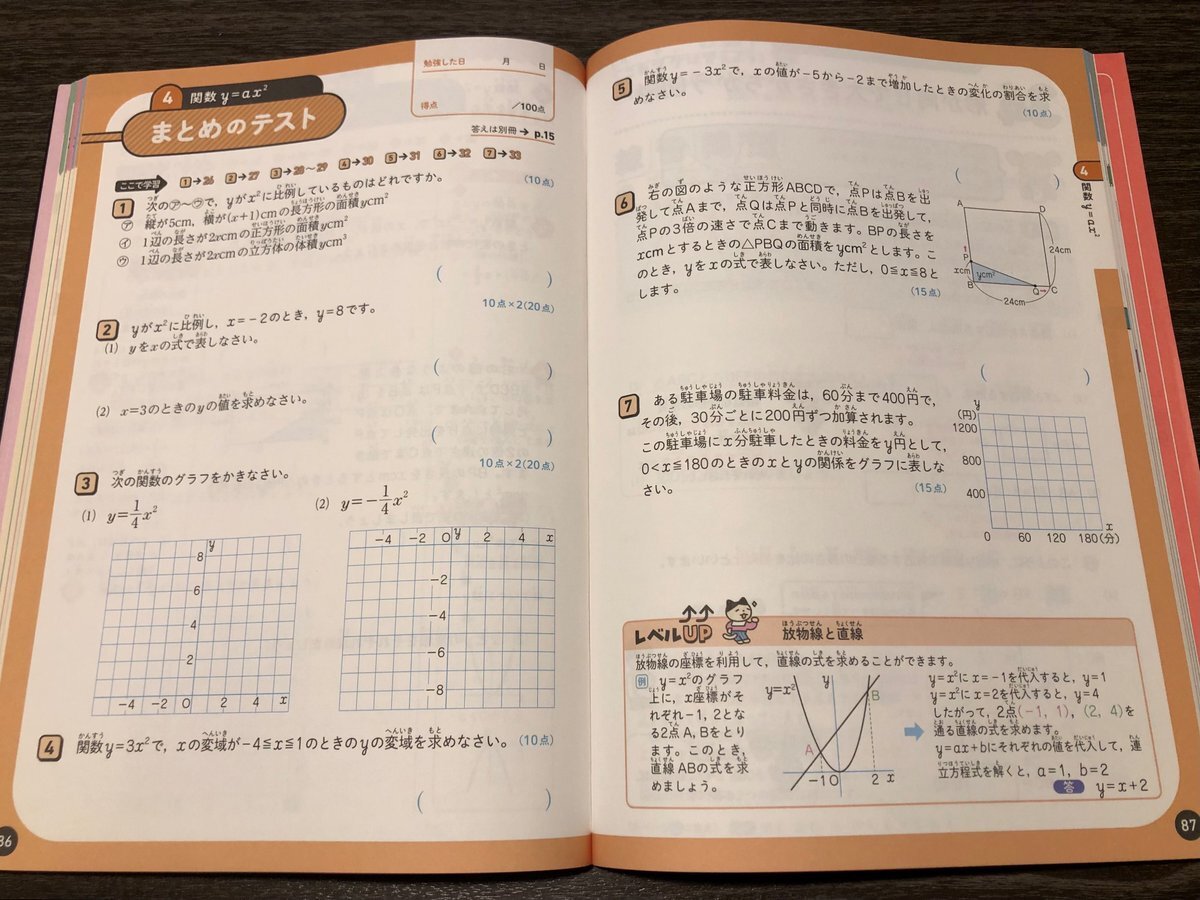 4 関数 y=ax²
まとめのテスト
勉強した日 月 日
得点 /100点
答えは別冊→ p.15
ここで学習 1→26 2→27 3→28〜29 4→30 5→31 6→32 7→33
1 次の㋐〜㋒で、yがx²に比例しているものはどれですか。 (10点)
㋐ 縦が5cm，横が(x+1)cmの長方形の面積ycm²
㋑ 1辺の長さが2xcmの正方形の面積ycm²
㋒ 1辺の長さが2xcmの立方体の体積ycm³
( )
2 yがx²に比例し，x=-2のとき，y=8です。 10点×2(20点)
(1) yをxの式で表しなさい。
( )
(2) x=3のときのyの値を求めなさい。
( )
3 次の関数のグラフをかきなさい。 10点×2(20点)
(1) y=1/4x² (2) y=-1/4x²
y
8
6
4
2
-4 -2 0 2 4 x
-4 -2 0 y 2 4 x
-2
-4
-6
-8
4 関数y=3x²で，xの変域が-4≦x≦1のときのyの変域を求めなさい。(10点)
( )
5 関数y=-3x²で，xの値が-5から-2まで増加したときの変化の割合を求
めなさい。 (10点)
( )
6 右の図のような正方形ABCDで，点Pは点Bを出
発して点Aまで，点Qは点Pと同時に点Bを出発して，
点Pの3倍の速さで点Cまで動きます。BPの長さを
xcmとするときの△PBQの面積をycm²とします。こ
のとき，yをxの式で表しなさい。ただし，0≦x≦8と
します。 (15点)
A D
24cm
P
xcm ycm²
B Q→ C
24cm
( )
7 ある駐車場の駐車料金は，60分まで400円で，
その後，30分ごとに200円ずつ加算されます。
この駐車場にx分駐車したときの料金をy円として，
0<x≦180のときのxとyの関係をグラフに表しな
さい。 (15点)
y
(円)
1200
800
400
x
0 60 120 180(分)
レベルUP 放物線と直線
放物線の座標を利用して，直線の式を求めることができます。
例 y=x²のグラフ
上に，x座標がそ
れぞれ-1，2とな
る2点A，Bをとり
ます。このとき，
直線ABの式を求
めましょう。
y=x² y
B
A
-1 0 2 x
y=x²にx=-1を代入すると，y=1
y=x²にx=2を代入すると，y=4
したがって，2点(-1, 1)，(2, 4)を
通る直線の式を求めます。
y=ax+bにそれぞれの値を代入して，連
立方程式を解くと，a=1，b=2
答 y=x+2
4
関数 y=ax²
87